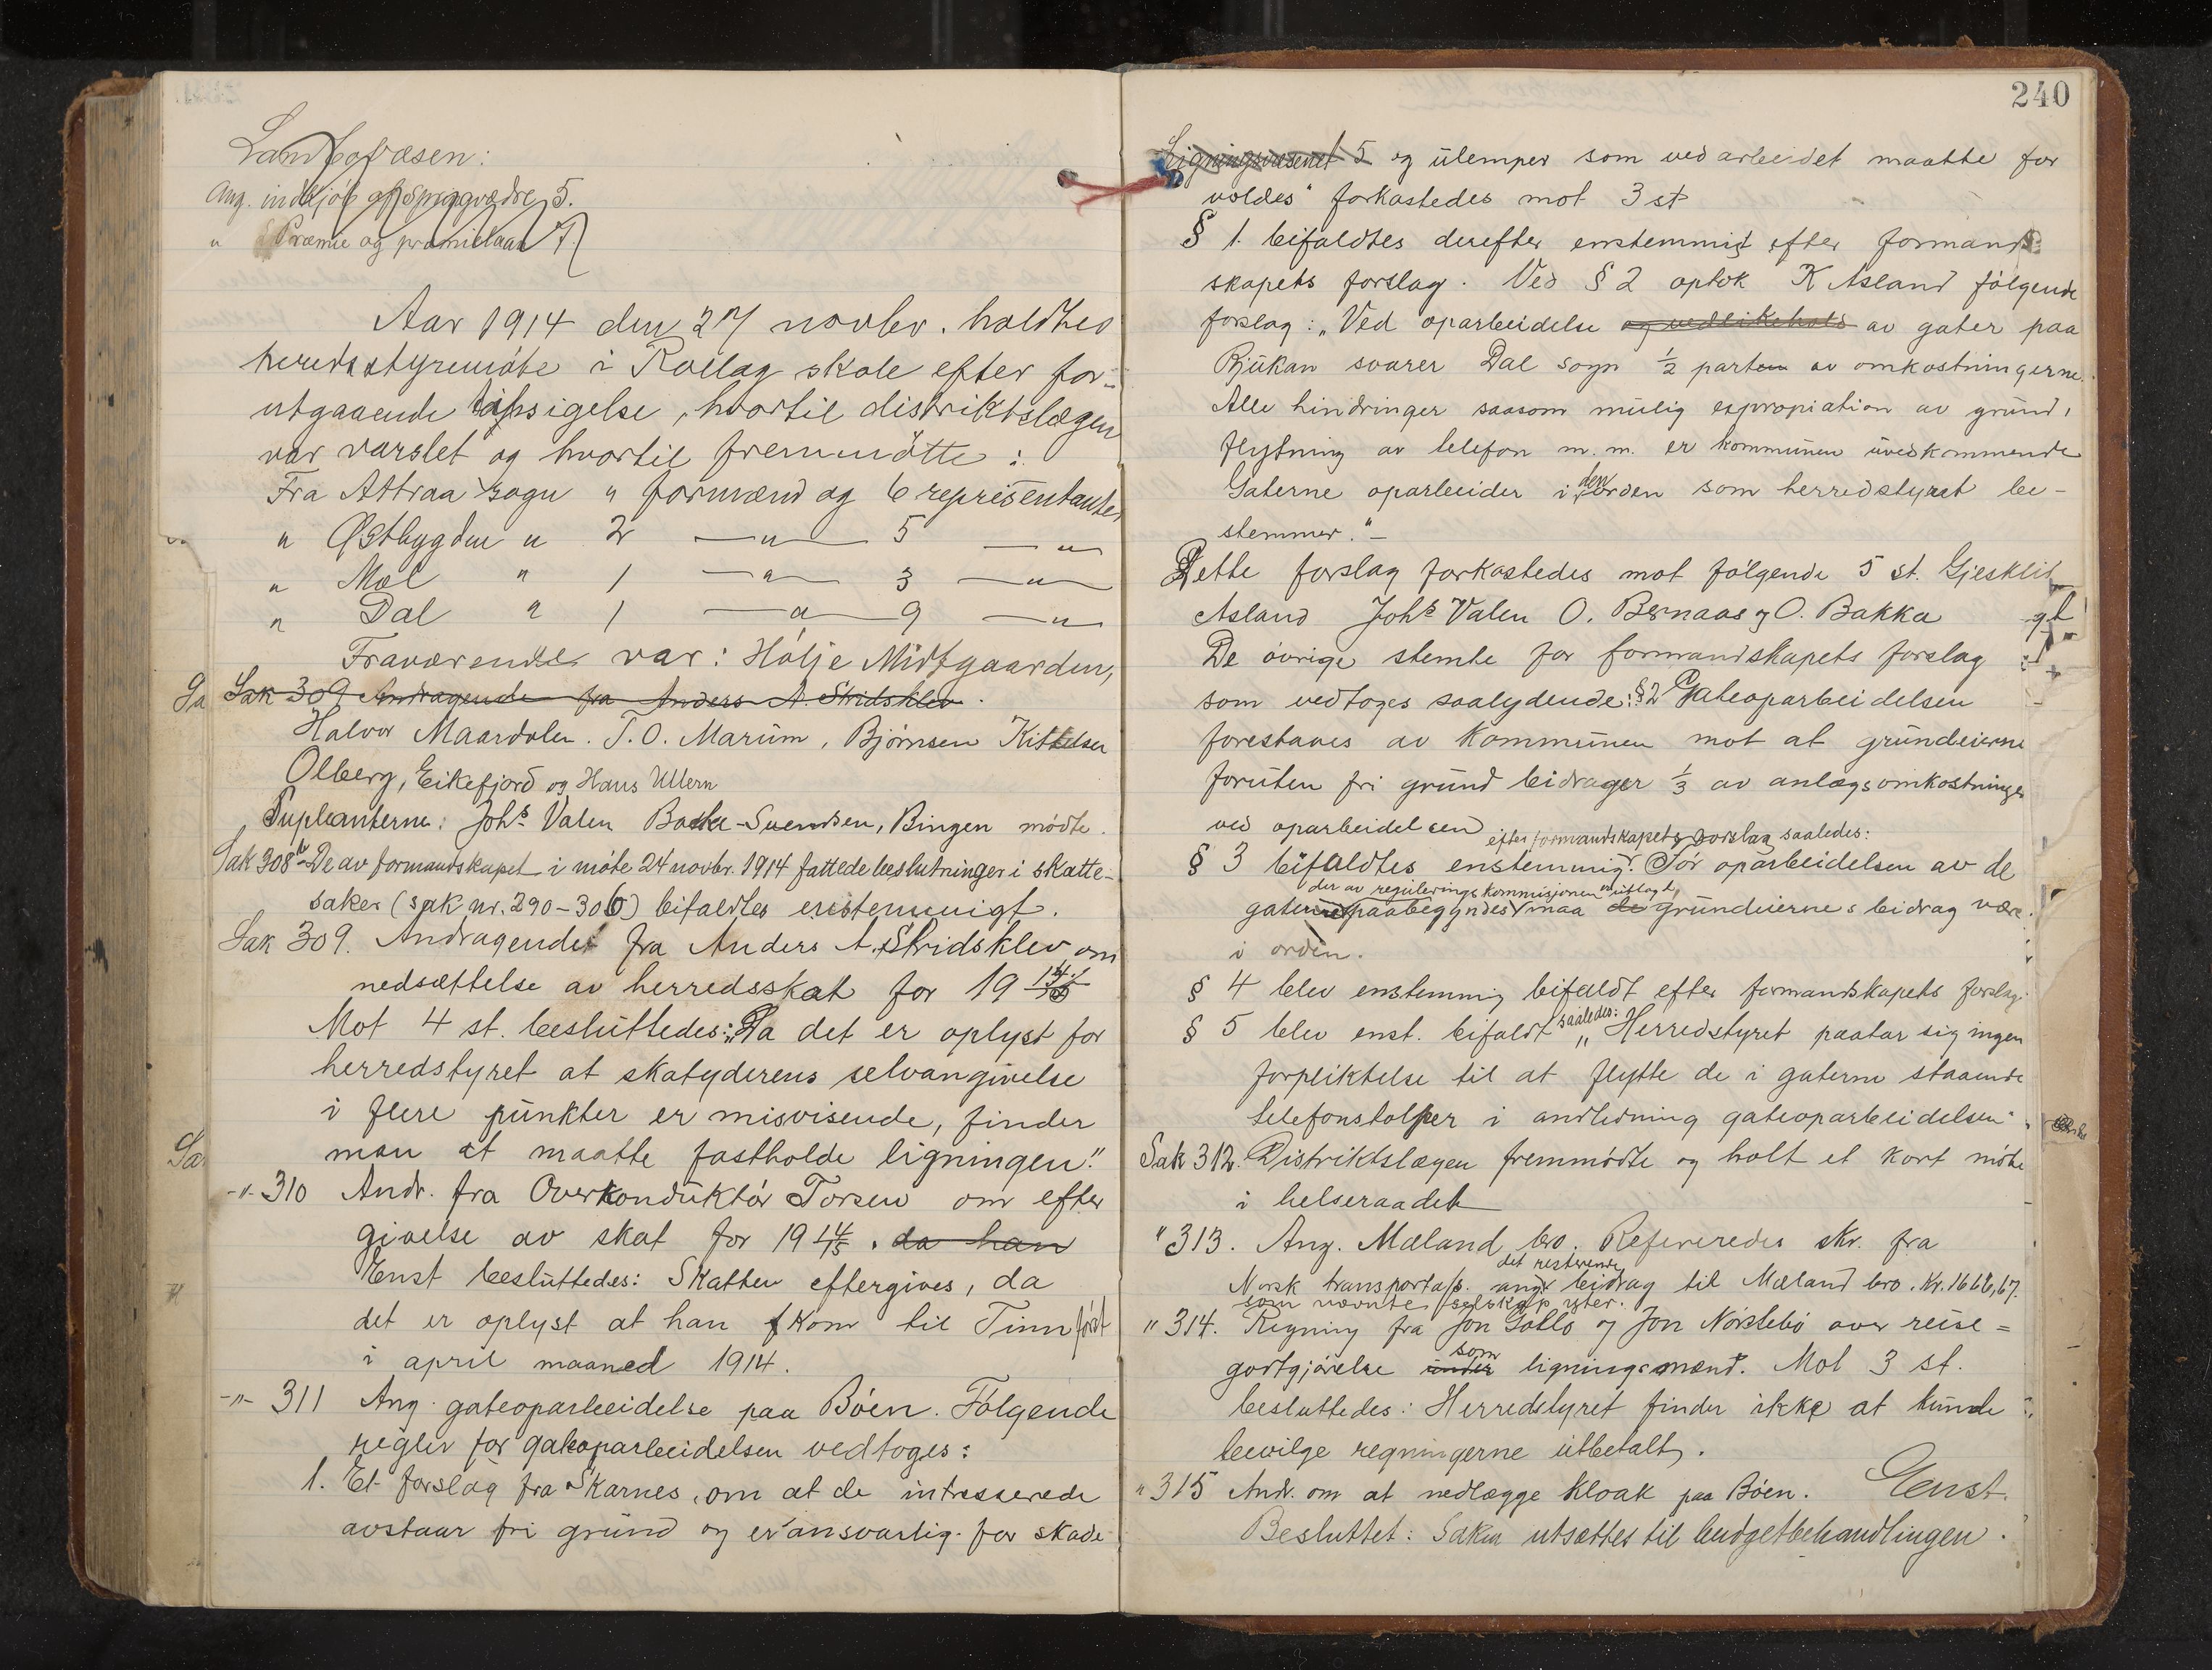 Landbovæsen:
Ang. indkjøb af Springvædre 5.
" Præmie og præmielaan 7.
Aar 1914 den 27 novbr. holdtes
herredsstyremøte i Rollag skole efter for-
utgaaende tilsigelse, hvortil distriktslægen
var varslet og hvortil fremmøtte:
Fra Attraa sogn 4 formænd og 6 repræsentanter
" Østbygden " 2 —"— 5 —"—
" Mæl " 1 —"— 3 —"—
" Dal " 1 —"— 9 —"—
Fraværende var: Hølje Midtgaarden,
Sak 309 Andragende fra Anders A. Skridsklev.
Halvor Maardalen. T. O. Marum, Bjørnsen Kittelsen
Olberg, Eikefjord og Hans Ullern
Supleanterne: Johs Valen Svendsen, Bingen mødte.
Sak 308 De av formandskapet i møte 24 novbr. 1914 fattede beslutninger i skatte-
saker (sak nr. 290-306) bifaldtes enstemmigt.
Sak 309. Andragende fra Anders A. Skridsklev om
nedsættelse av herredsskat for 19 14/15
Mot 4 st. besluttedes: "Da det er oplyst for
herredstyret at skatyderens selvangivelse
i flere punkter er misvisende, finder
man at maatte fastholde ligningen."
-"- 310 Andr. fra Overkonduktør Torsen om efter
givelse av skat for 19 14/15. da han
Enst besluttedes: Skatten eftergives, da
det er oplyst at han kom til Tinn først
i april maaned 1914.
-"- 311 Ang. gateoparbeidelse paa Bøen. Følgende
regler for gateoparbeidelsen vedtoges:
1. Et forslag fra Skarnes, om at de intresserede
avstaar fri grund og er "ansvarlig for skade
240
Ligningsvæsenet 5 og ulemper som ved arbeidet maatte for
voldes" forkastedes mot 3 st
§ 1. bifaldtes derefter enstemmigt efter formand
skapets forslag. Ved § 2 optok K Asland følgende
forslag: "Ved oparbeidelse og vedlikehold av gater paa
Rjukan svarer Dal sogn 1/2 parten av omkostningerne.
Alle hindringer saasom mulig expropiation av grund,
flytning av telefon m. m. er kommunen uvedkommende
Gaterne oparbeider i den orden som herredstyret be-
stemmer."—
Dette forslag forkastedes mot følgende 5 st. Gjesklit
Asland Johs Valen O. Bernaas og O. Bakka
De øvrige stemte for formandskapets forslag
som vedtoges saalydende: § 2 Gateoparbeidelsen
forestaaes av kommunen mot at grundeierne
foruten fri grund bidrager 1/3 av anlægsomkostninger
ved oparbeidelsen
efter formandskapets forslag saaledes:
§ 3 bifaldtes enstemmig. Før oparbeidelsen av de
der av reguleringskommisjonen er utlagt,
gater paabegyndes maa de grundeiernes bidrag være
i orden.
§ 4 blev enstemmig bifaldt efter formandskapets forslag.
§ 5 blev enst. bifaldt saaledes: "Herredstyret paatar sig ingen
forpliktelse til at flytte de i gaterne staaende
telefonstolper i anledning gateoparbeidelsen".
Sak 312. Distriktslægen fremmødte og holt et kort møte
i helseraadet
" 313. Ang. Mæland bro. Refereredes skr. fra
Norsk transporta/s. ang det resterende bidrag til Mæland bro. Kr. 1666,67.
som nævnte selskap yter.
" 314. Regning fra Jon Gollo og Jon Nørstebø over reise=
godtgjørelse under som ligningsmænd. Mot 3 st.
besluttedes: Herredstyret finder ikke at kunde
bevilge regningerne utbetalt.
" 315 Andr. om at nedlægge kloak paa Bøen. Enst.
Besluttet: Saken utsættes til budgetbehandlingen.